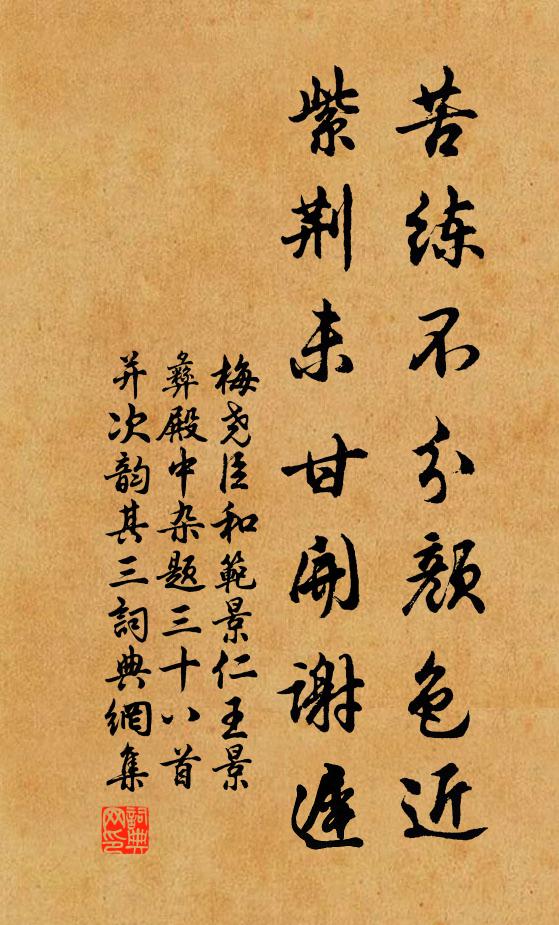 苦练不分颜色近
紫荆未甘開谢遲
梅尧臣和範景仁王景
彝殿中杂题三十八首
并次韵其三詞典網集
詞典网印